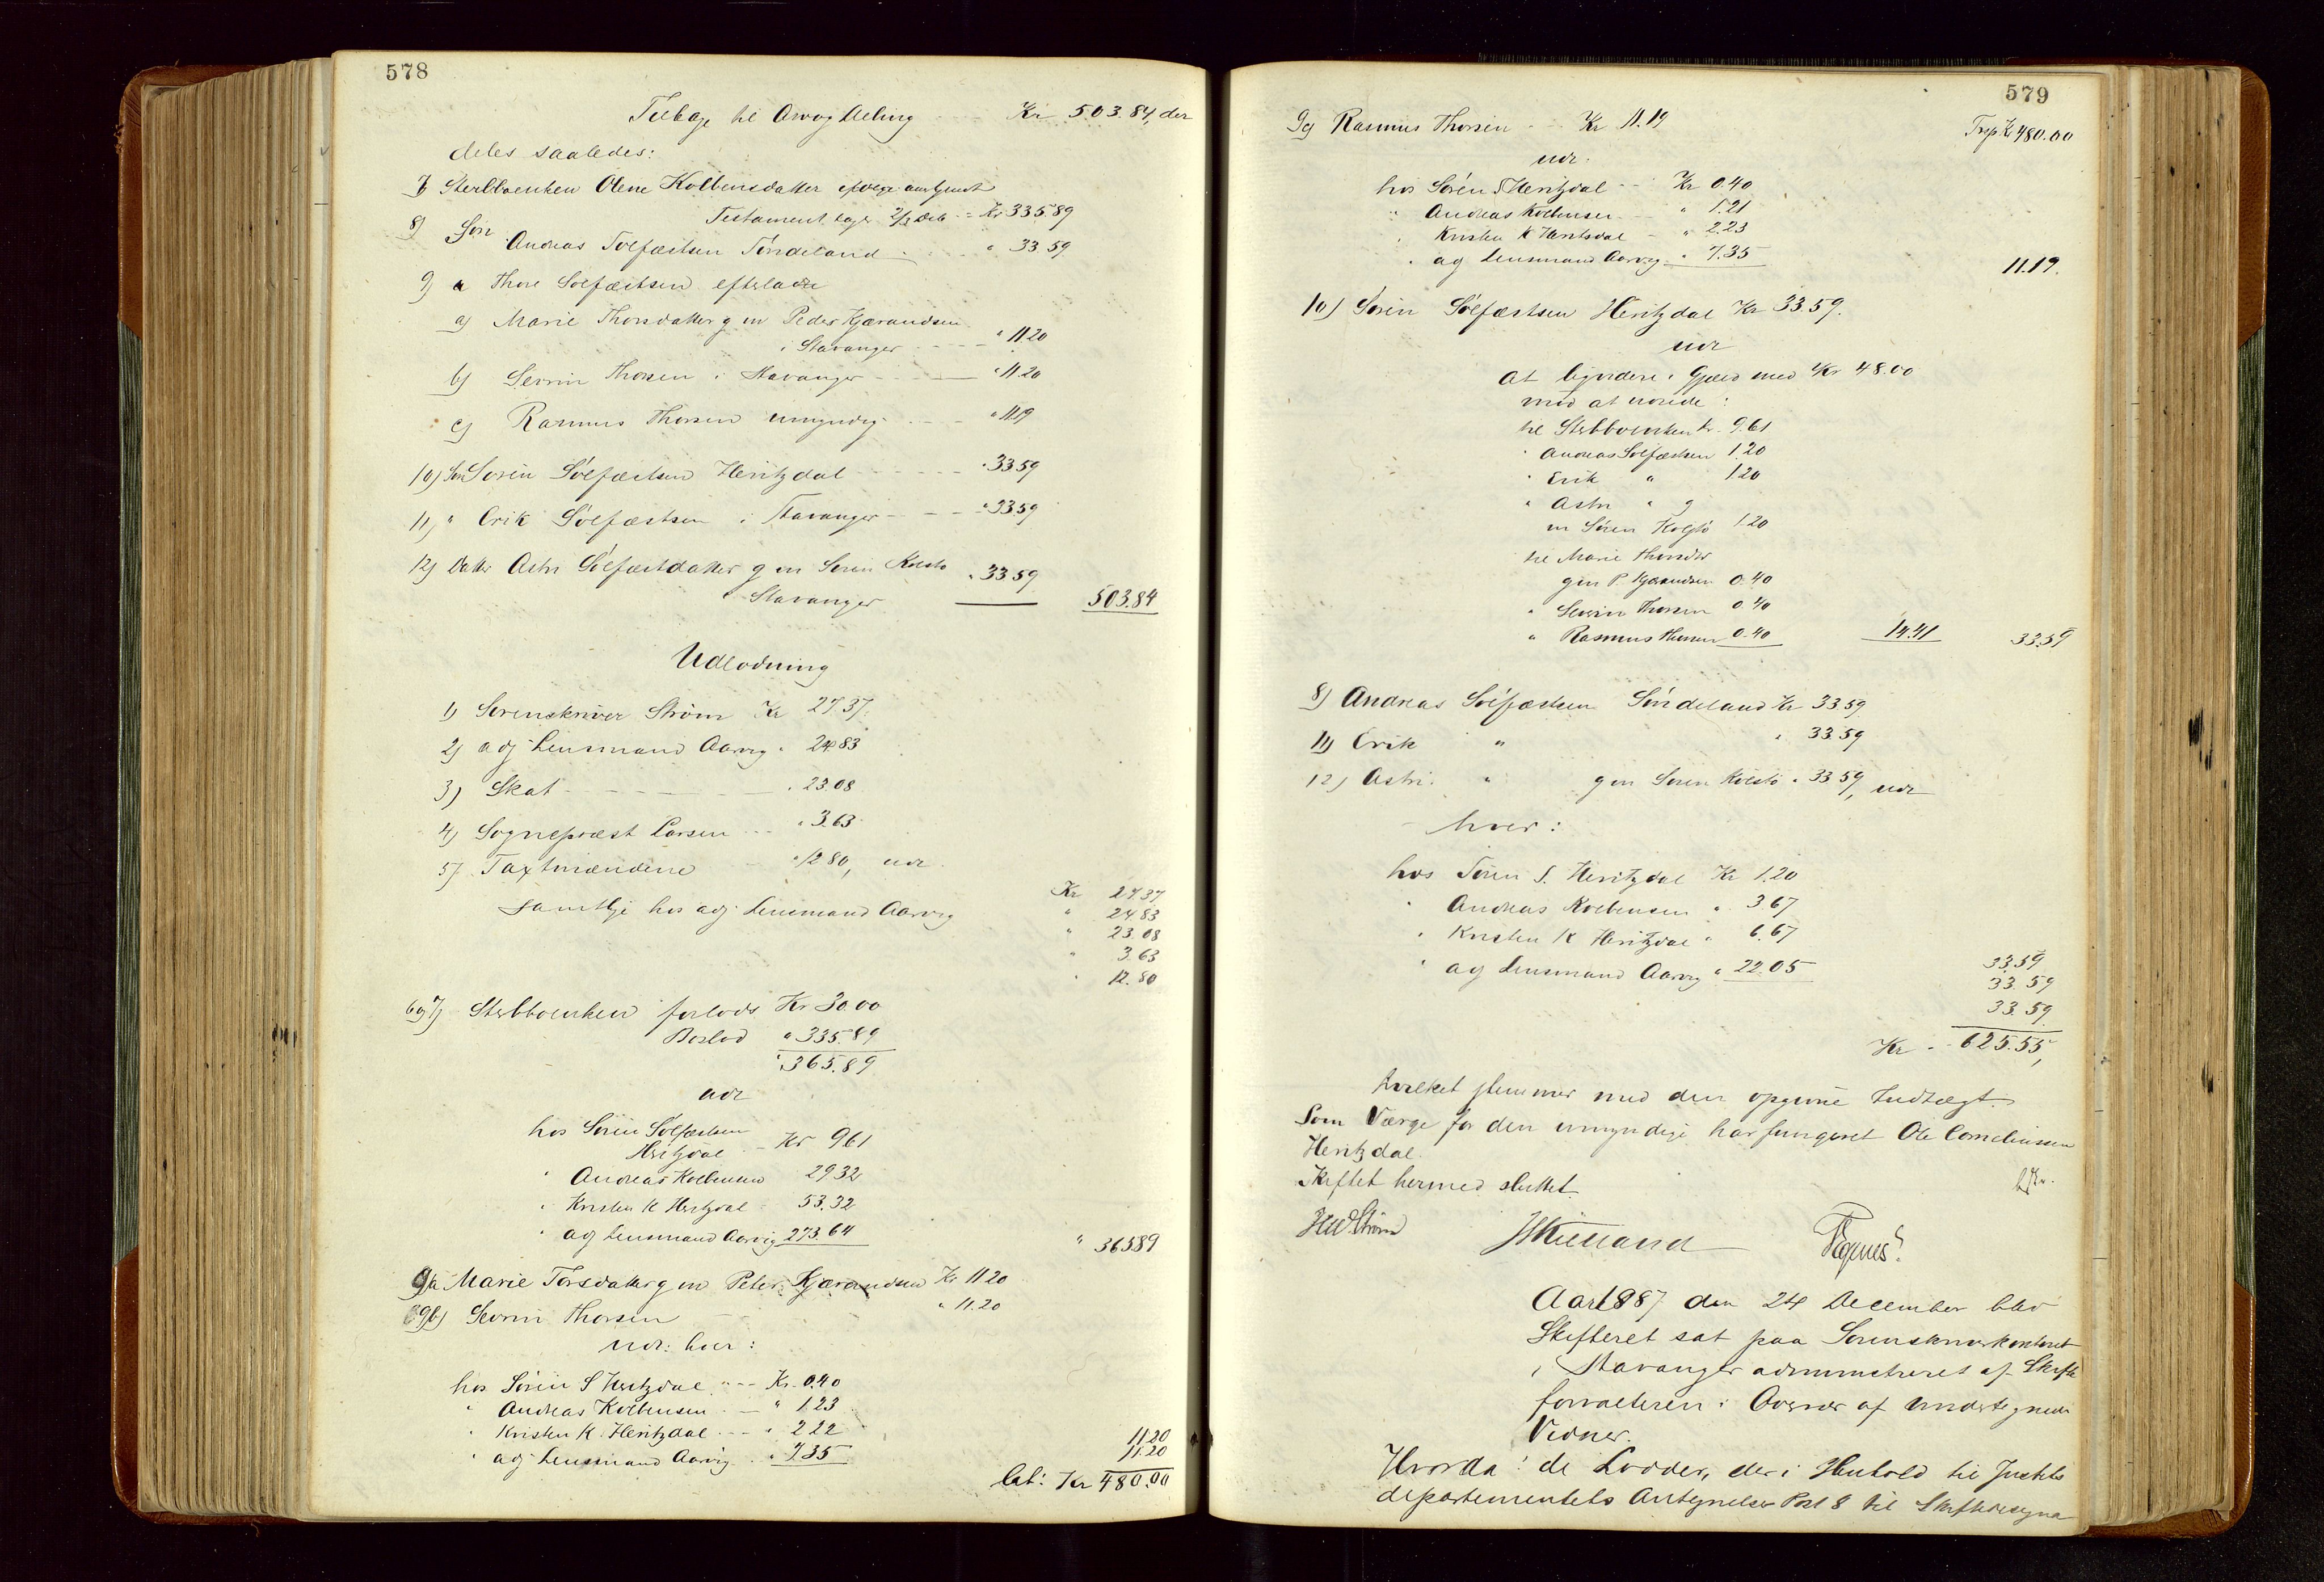 578
Tilbage til Arv og Deling Kr 503.84, der
deles saaledes:
7) Sterbboenken Olene Kolbensdatter ifølge
Testament tager 2/3 Deb Kr 335.89
8) Søn Andreas Sølfæstsen Søndeland " 33.59
9) a Thore Solfæstsen efterladte
a) Marie Thorsdatter g m Peder Kjærandsen
i Stavanger " 11.20
b) Sevrin Thorsen i Stavanger " 11.20
c) Rasmus Thorsen umyndig " 11.19
10) Søn Søren Sølfæstsen Heritzdal " 33.59
11) " Erik Sølfæstsen i Stavanger " 33.59
12) Datter Astri Sølfæstdatter g m Søren Kolstø
Stavanger " 33.59 503.84
Udlodning
1) Sorenskriver Strøm Kr 27.37
2) adj Lensmand Aarvig " 24.83
3) Skat " 23.08
4) Sognepræst Larsen " 3.63
5) Taxtmændene " 12.80, udl
samtlige hos adj Lensmand Aarvig Kr 27.37
" 24.83
" 23.08
" 3.63
" 12.80
6 og 7) Sterbboenken forlods Kr 30.00
Boslod " 335.89
" 365.89
udl
hos Søren Sølfæstsen
Heritzdal Kr 9.61
" Andreas Kolbensen 29.32
" Kristen K Heritzdal 53.32
" adj Lensmand Aarvig 273.64 " 365.89
9a Marie Torsdatter g m Peter Kjærandsen Kr 11.20
9b) Sevrin Thorsen " 11.20
udl: hver:
hos Søren S Heritzdal Kr. 0.40
" Andreas Kolbensen " 1.23
" Kristen K. Heritzdal " 2.22 11.20
" adj Lensmand Aarvig " 7.35 11.20
Lat: Kr 480.00
579
9c) Rasmus Thorsen Kr 11.19 Trsp Kr 480.00
udl:
hos Søren S Heritzdal Kr 0.40
" Andreas Kolbensen " 1.21
" Kristen K Heritzdal " 2.23
" adj Lensmand Aarvig " 7.35 11.19.
10) Søren Sølfæstsen Heritzdal Kr 33.59.
udl
at liqvidere i Gjæld med Kr 48.00
mod at udrede:
til Sterbboenken Kr 9.61
" Andreas Solfæstsen 1.20
" Erik " 1.20
" Astri " g
m Søren Kolstø 1.20
til Marie Thorsdtr
g m P. Kjærandsen 0.40
" Sevrin Thorsen 0.40
" Rasmus Thorsen 0.40 14.41 33.59
8) Andreas Sølfæstsen Søndeland Kr 33.59
11) Erik " " 33.59
12) Astri " g m Søren Kolstø " 33.59, udl
hver:
hos Søren S. Heritzdal Kr 1.20
" Andreas Kolbensen " 3.67
" Kristen K Heritzdal " 6.67
" adj Lensmand Aarvig " 22.05 33.59
33.59
33.59
Kr 625.55,
hvilket stemmer med den opgivne Indtægt.
Som Værge for den umyndige har fungeret Ole Corneliussen
Heritzdal.
Skiftet hermed sluttet.
HW Strøm Kielland
Aar 1887 den 24 December blev
Skifteret sat paa Sorenskriverkontoret
i Stavanger administreret af Skifte
forvalteren i Overvær af undertegnede
Vidner.
Hvorda: de Lodder, der i Henhold til Justits
departementets Antegnelser Post 8 til Skiftedesigna